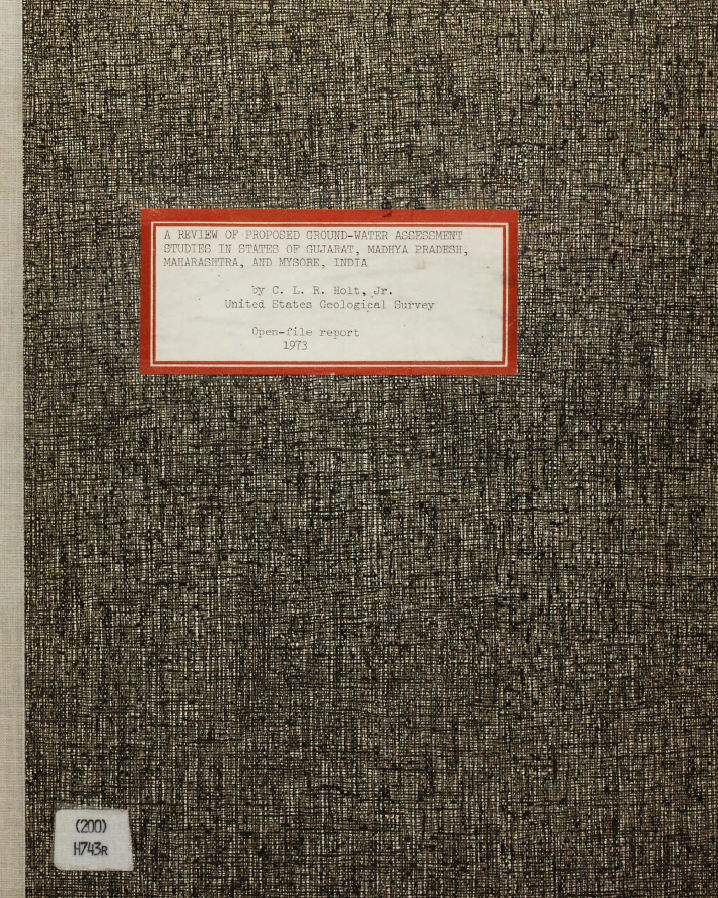 A REVIEW OF PROPOSED GROUND-WATER ASSESSMENT
STUDIES IN STATES OF GUJARAT, MADHYA PRADESH,
MAHARASHTRA, AND MYSORE, INDIA
by C. L. R. Holt, Jr.
United States Geological Survey
Open-file report
1973
(200)
H743R